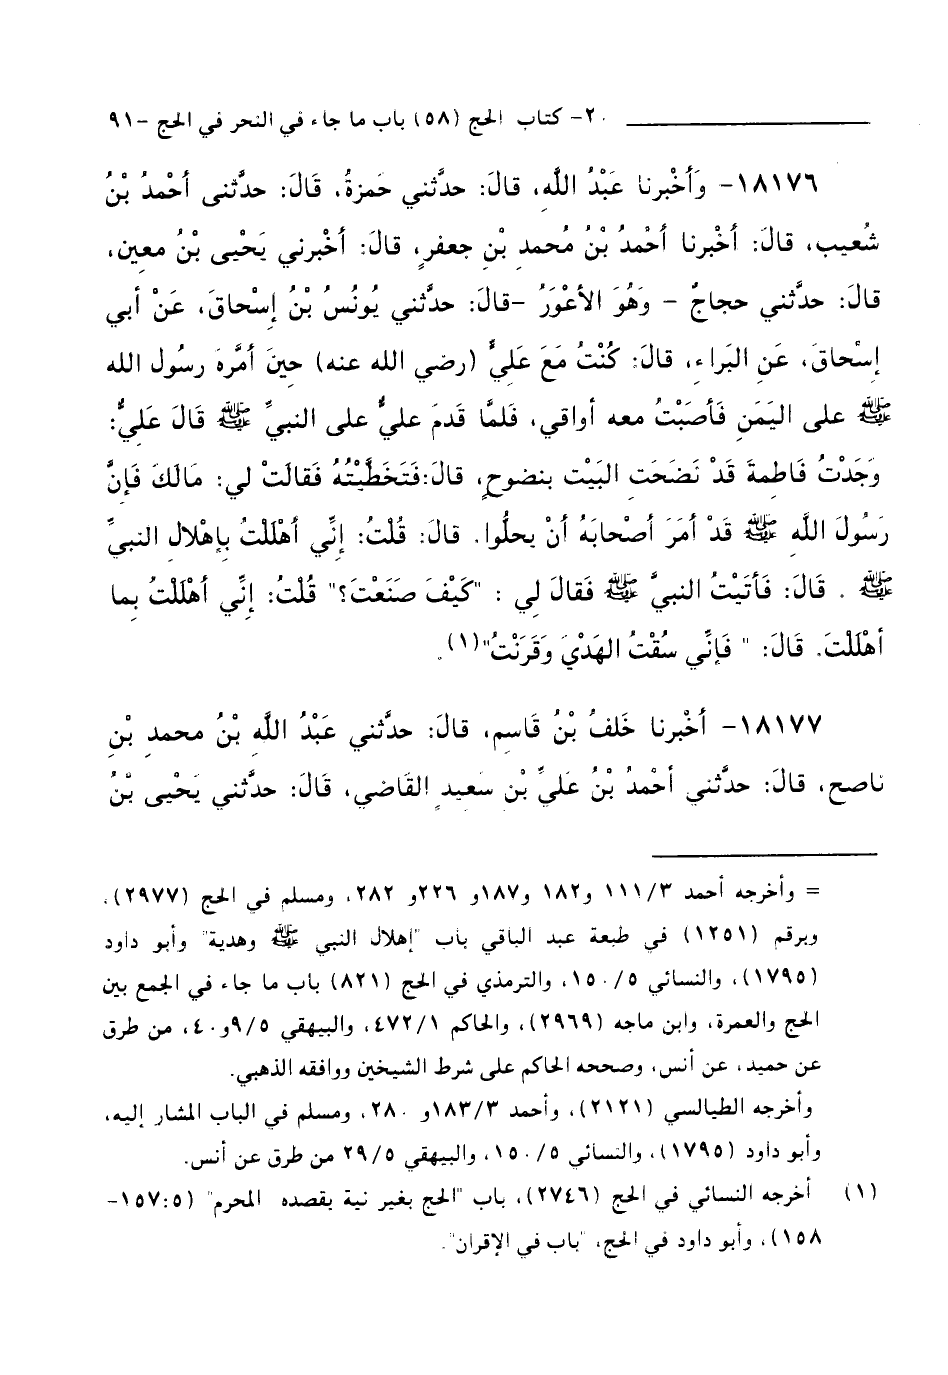 ٢٠- كتاب الحج (٥٨) باب ما جاء في النحر في الحج -٩١
١٨١٧٦- وَأَخْبرنا عَبْدُ اللَّهِ، قالَ: حدَّثني حَمزةُ، قَالَ: حدَّثنى أحْمدُ بْنُ
شُعيب، قَالَ: أَخْبرنا أحْمدُ بْنُ مُحمدِ بْنِ جعفرٍ، قَالَ: أخْبرني يَحْيى بْنُ معِين،
قالَ: حدَّثني حجاجٌ – وَهُوَ الأعْوَرُ –قالَ: حدَّثني يُونُسُ بْنُ إسْحاقَ، عَنْ أبي
إسْحاقَ، عَنِ البَراءِ، قَالَ: كُنْتُ مَعَ عَلِيٍّ (رضي الله عنه) حِينَ أمَّرَهُ رسُول الله
ﷺ على اليَمَنِ فَأصَبْتُ معه أواقي، فَلمَّا قَدمَ عليٌّ على النبيِّ ﷺ قَالَ عَلِيٌّ:
وَجَدْتُ فَاطمةَ قَدْ نَضَحَتِ البَيْت بنضوحٍ، قالَ:فَتَخَطَّيْتُهُ فَقالَتْ لي: مَالَكَ فَإنَّ
رَسُولَ اللَّهِ ﷺ قَدْ أمَرَ أصْحابَهُ أنْ يحلُّوا. قالَ: قُلْتُ: إنِّي أهْلَلْتُ بإهْلال النبيِّ
ﷺ . قَالَ: فَأتَيْتُ النبيَّ ﷺ فَقالَ لي : "كَيْفَ صَنَعْتَ؟" قُلْتُ: إنِّي أهْلَلْتُ بما
أهْلَلْتَ. قَالَ: " فَإنِّي سُقْتُ الهَدْيَ وَقَرَنْتُ"(١).
١٨١٧٧- أخْبرنا خَلفُ بْنُ قَاسِم، قَالَ: حدَّثني عَبْدُ اللَّهِ بْنُ محمدِ بْنِ
ناصح، قَالَ: حدَّثني أحْمدُ بْنُ عَليِّ بْنِ سَعيدٍ القَاضي، قَالَ: حدَّثني يَحْيى بْنُ
= وأخرجه أحمد ١١١/٣ و١٨٢ و١٨٧و ٢٢٦و ٢٨٢، ومسلم في الحج (٢٩٧٧)،
وبرقم (١٢٥١) في طبعة عبد الباقي باب "إهلال النبي ﷺ وهدية" وأبو داود
(١٧٩٥)، والنسائي ١٥٠/٥، والترمذي في الحج (٨٢١) باب ما جاء في الجمع بين
الحج والعمرة، وابن ماجه (٢٩٦٩)، والحاكم ٤٧٢/١، والبيهقي ٩/٥و٤٠، من طرق
عن حميد، عن أنس، وصححه الحاكم على شرط الشيخين ووافقه الذهبي.
وأخرجه الطيالسي (٢١٢١)، وأحمد ١٨٣/٣و ٢٨٠، ومسلم في الباب المشار إليه،
وأبو داود (١٧٩٥)، والنسائي ١٥٠/٥، والبيهقي ٢٩/٥ من طرق عن أنس.
(١) أخرجه النسائي في الحج (٢٧٤٦)، باب "الحج بغير نية بقصده المحرم" (١٥٧:٥-
١٥٨)، وأبو داود في الحج، "باب في الإقران".